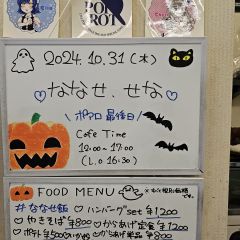 POR
ROT
2024.10.31 (木)
♡ななせ、せな♡
\ ポワロ最後日 /
Cafe Time
12:00〜17:00
(L.O 16:30)
FOOD MENU
#ななせ飯 ♡ハンバーグset ¥1200
♡やきそば ¥800 ♡からあげ定食 ¥1200
♡ポテト ¥500 ♡からあげ単品 ¥800